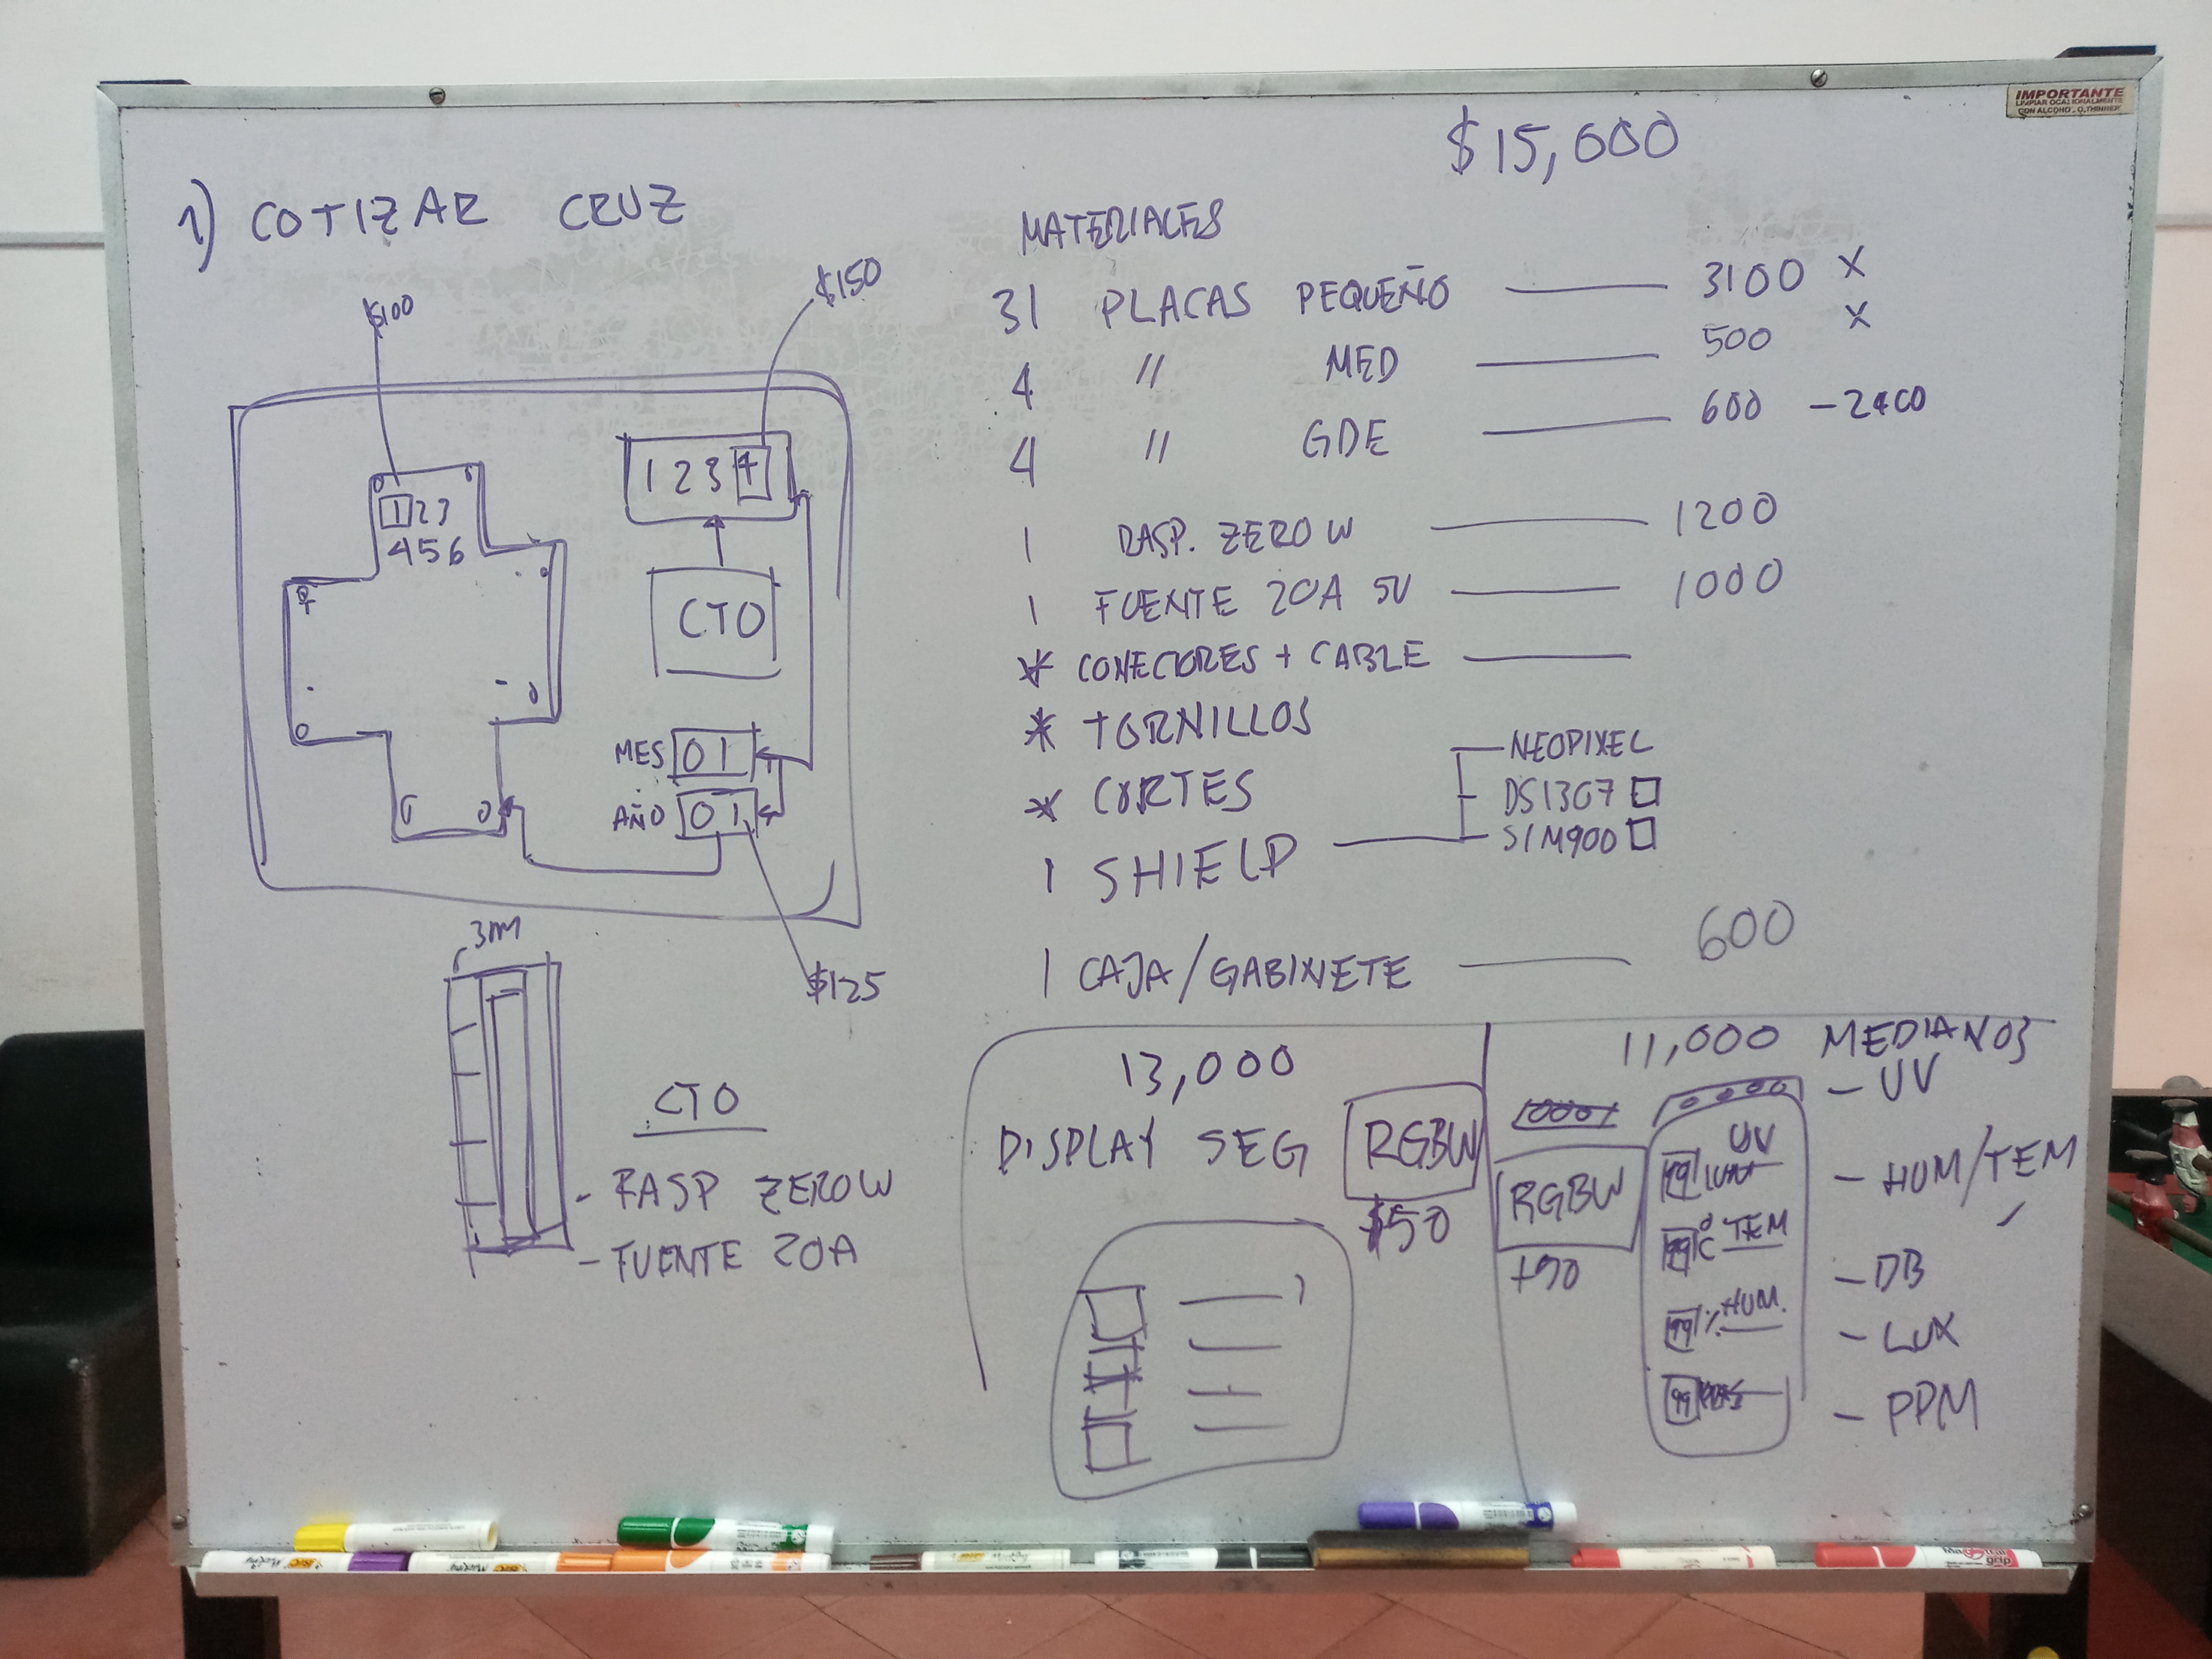 IMPORTANTE
LIMPIAR OCASIONALMENTE
CON ALCOHOL O THINNER
$15,000
1) COTIZAR CRUZ
$100
$150
1 2 3 4
1 2 3
4 5 6
CTO
MES 0 1
AÑO 0 1
$125
3m
CTO
- RASP ZERO W
- FUENTE 20A
MATERIALES
31 PLACAS PEQUEÑO 3100 X
4 " MED 500 X
4 " GDE 600 - 2400
1 RASP. ZERO W 1200
1 FUENTE 20A 5V 1000
* CONECTORES + CABLE
* TORNILLOS
* CORTES
1 SHIELD
NEOPIXEL
DS1307
SIM900
1 CAJA/GABINETE 600
13,000
DISPLAY SEG RGBW
$50
11,000 MEDIANOS
RGBW
+50
UV
99
99 °C TEM
99 % HUM.
99
- UV
- HUM/TEM
- DB
- LUX
- PPM